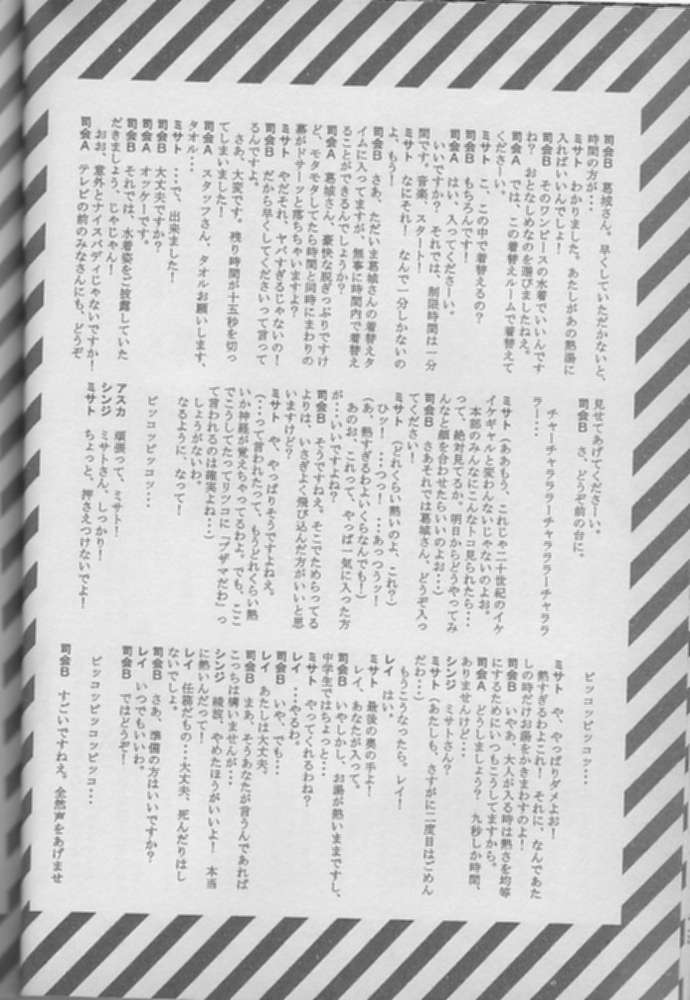 司会B 葛城さん。早くしていただかないと、
時間の方が…
ミサト わかりました。あたしがあの熱湯に
入ればいいんでしょ！
司会B そのワンピースの水着でいいんです
ね？ おとなしめなのを選びましたねえ。
司会A では、この着替えルームで着替えて
くださーい。
ミサト こ、この中で着替えるの？
司会B もちろんです！
司会A はい、入ってください。
いいですか？ それでは、制限時間は一分
間です。音楽、スタート！
ミサト なにそれ！ なんで一分しかないの
よ、もう！
司会B さあ、ただいま葛城さんの着替えタ
イムに入ってますが、無事に時間内で着替え
ることができるんでしょうか？
司会A 葛城さん、豪快な脱ぎっぷりですけ
ど、モタモタしてたら時間と同時にまわりの
幕がドサーッと落ちちゃいますよ？
ミサト やだそれ、ヤバすぎるじゃないの！
司会B だから早くしてくださいって言って
るんですよ。
さあ、大変です。残り時間が十五秒を切っ
てしまいました！
司会A スタッフさん、タオルお願いします、
タオル…
ミサト …で、出来ました！
司会B 大丈夫ですか？
司会A オッケーです。
司会B それでは、水着姿をご披露していた
だきましょう、じゃじゃん！
おお、意外とナイスバディじゃないですか！
司会A テレビの前のみなさんにも、どうぞ
見せてあげてくださーい。
司会B さ、どうぞ前の台に。
チャーチャラララーチャラララーチャララ
ラー…
ミサト （ああもう、これじゃ二十世紀のイケ
イケギャルと変わんないじゃないのよお。
本部のみんなにこんなトコ見られたら…
って、絶対見てるか、明日からどうやってみ
んなと顔を合わせたらいいのよお…）
司会B さあそれでは葛城さん、どうぞ入っ
てください！
ミサト （どれくらい熱いのよ、これ？）
ひッ！ …つっ！ …あっつうッ！
（あ、熱すぎるわよいくらなんでも！）
あのお、これって、やっぱ一気に入った方
が…いいですよね？
司会B そうですねえ。そこでためらってる
よりは、いさぎよく飛び込んだ方がいいと思
いますけど？
ミサト や、やっぱりそうですよねえ。
（…って言われたって、もうどれくらい熱
いか神経が覚えちゃってるわよ。でも、ここ
でこうしてたってリツコに「ブザマだわ」っ
て言われるのは確実よね…）
しょうがないわ。
なるように、なって！
ピッコッピッコッ…
アスカ 頑張って、ミサト！
シンジ ミサトさん、しっかり！
ミサト ちょっと、押さえつけないでよ！
ピッコッピッコッ…
ミサト や、やっぱりダメよお！
熱すぎるわよこれ！ それに、なんであた
しの時だけお湯をかきまわすのよ！
司会B いやあ、大人が入る時は熱さを均等
にするためにいつもこうしてますから。
司会A どうしましょう？ 九秒しか時間、
ありませんけど…
シンジ ミサトさん？
ミサト （あたしも、さすがに二度目はごめん
だわ…）
もうこうなったら。レイ！
レイ はい。
ミサト 最後の奥の手よ！
レイ、あなたが入って。
司会B いやしかし、お湯が熱いままですし、
中学生ではちょっと…
ミサト やってくれるわね？
レイ …やるわ。
司会B いや、でも…
レイ あたしは大丈夫。
司会B まあ、そうあなたが言うんであれば
こっちは構いませんが…
シンジ 綾波、やめたほうがいいよ！ 本当
に熱いんだって！
レイ 任務だもの…大丈夫、死んだりはし
ないでしょ。
司会B さあ、準備の方はいいですか？
レイ いつでもいいわ。
司会B ではどうぞ！
ピッコッピッコッピッコ…
司会B すごいですねえ。全然声をあげませ